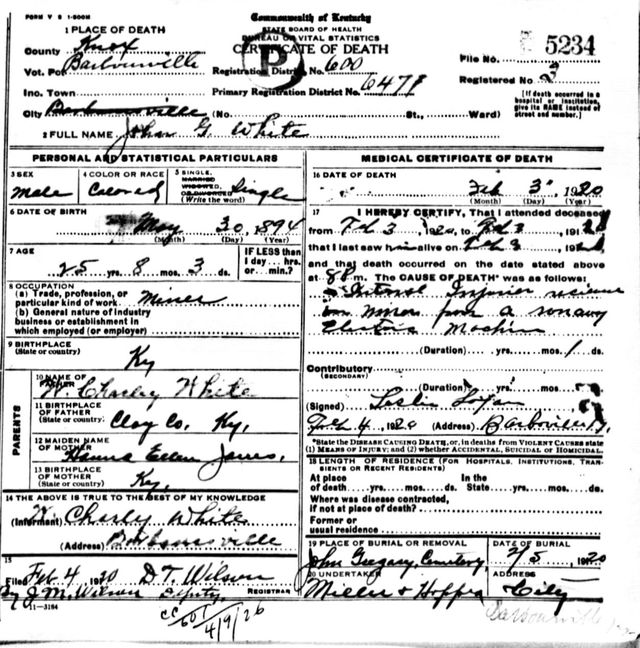 FORM V S 1-500M
Commonwealth of Kentucky
STATE BOARD OF HEALTH
BUREAU OF VITAL STATISTICS
CERTIFICATE OF DEATH
1 PLACE OF DEATH
County Knox
Vot. Pct. Barbourville
Inc. Town
City Barbourville (No. St., Ward)
Registration District No. 600
Primary Registration District No. 6471
P
File No. 5234
Registered No. 3
[If death occurred in a hospital or institution, give its NAME instead of street and number.]
2 FULL NAME John G. White
PERSONAL AND STATISTICAL PARTICULARS
3 SEX
Male
4 COLOR OR RACE
Colored
5 SINGLE,
MARRIED
WIDOWED,
OR DIVORCED
(Write the word)
Single
6 DATE OF BIRTH
May 30, 1894
(Month) (Day) (Year)
7 AGE
25 yrs. 8 mos. 3 ds.
IF LESS than
1 day... hrs.
or... min.?
8 OCCUPATION
(a) Trade, profession, or
particular kind of work Miner
(b) General nature of industry
business or establishment in
which employed (or employer)
9 BIRTHPLACE
(State or country) Ky
PARENTS
10 NAME OF
FATHER
Charley White
11 BIRTHPLACE
OF FATHER
(State or country) Clay Co. Ky.
12 MAIDEN NAME
OF MOTHER
Hanna Ellen Jones,
13 BIRTHPLACE
OF MOTHER
(State or country) Ky.
14 THE ABOVE IS TRUE TO THE BEST OF MY KNOWLEDGE
(Informant) Charley White
(Address) Barbourville
15
Filed Feb 4, 1920 D.T. Wilson
REGISTRAR
By J.M. Wilson Deputy
11-3184
CC
601
4/9/26
MEDICAL CERTIFICATE OF DEATH
16 DATE OF DEATH
Feb 3, 1920
(Month) (Day) (Year)
17 I HEREBY CERTIFY, That I attended deceased
from Feb 3, 1920, to Feb 3, 1920
that I last saw him alive on Feb 3, 1920
and that death occurred on the date stated above
at 8 P m. The CAUSE OF DEATH* was as follows:
Internal Injuries
from a runaway
Electric Machine
(Duration) yrs. mos. 1 ds.
Contributory
(SECONDARY)
(Duration) yrs. mos. ds.
(Signed) Leslie Logan
Feb 4, 1920 (Address) Barbourville
*State the DISEASE CAUSING DEATH, or, in deaths from VIOLENT CAUSES state
(1) MEANS OF INJURY; and (2) whether ACCIDENTAL, SUICIDAL OR HOMICIDAL.
18 LENGTH OF RESIDENCE (FOR HOSPITALS, INSTITUTIONS, TRAN-
SIENTS OR RECENT RESIDENTS)
At place
of death yrs. mos. ds.
In the
State yrs. mos. ds.
Where was disease contracted,
if not at place of death?
Former or
usual residence
19 PLACE OF BURIAL OR REMOVAL
John Gregary, Cemetery
DATE OF BURIAL
2/5, 1920
20 UNDERTAKER
Miller & Hopper
ADDRESS
City
Barbourville